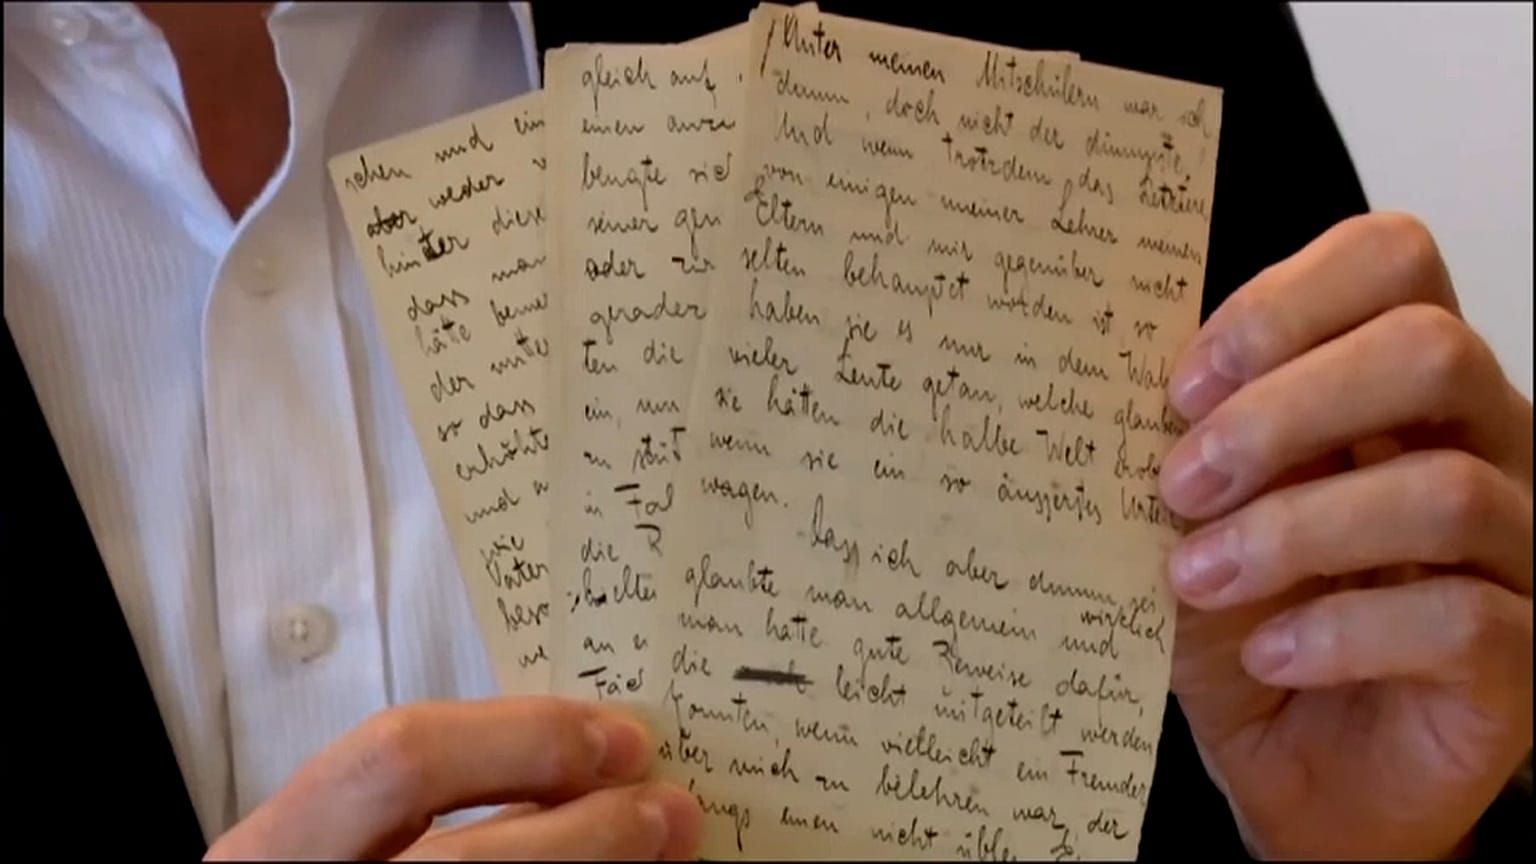 schen und ein
aber weder
hinter diese
dass man
hätte beme
der mitte
so dass
erhöhte
und
wie
Vater
beso
we
gleich auf
einen
beugte sich
seiner gen
oder zur
gerader
ten die
ein, um
zu
in Fal
die R
hielten
an
Fäch
Unter meinen Mitschülern war ich
dumm, doch nicht der dümmste.
Und wenn trotzdem das Letztere
von einigen meiner Lehrer meinen
Eltern und mir gegenüber nicht
selten behauptet worden ist, so
haben sie es nur in dem Wah
vieler Leute getan, welche glauben
sie hätten die halbe Welt erob
wenn sie ein so äusserstes Urteil
wagen.
Dass ich aber dumm sei
glaubte man allgemein und wirklich
man hatte gute Beweise dafür,
die leicht mitgeteilt werden
konnten, wenn vielleicht ein Fremder
über mich zu belehren war, der
fangs einen nicht üblen